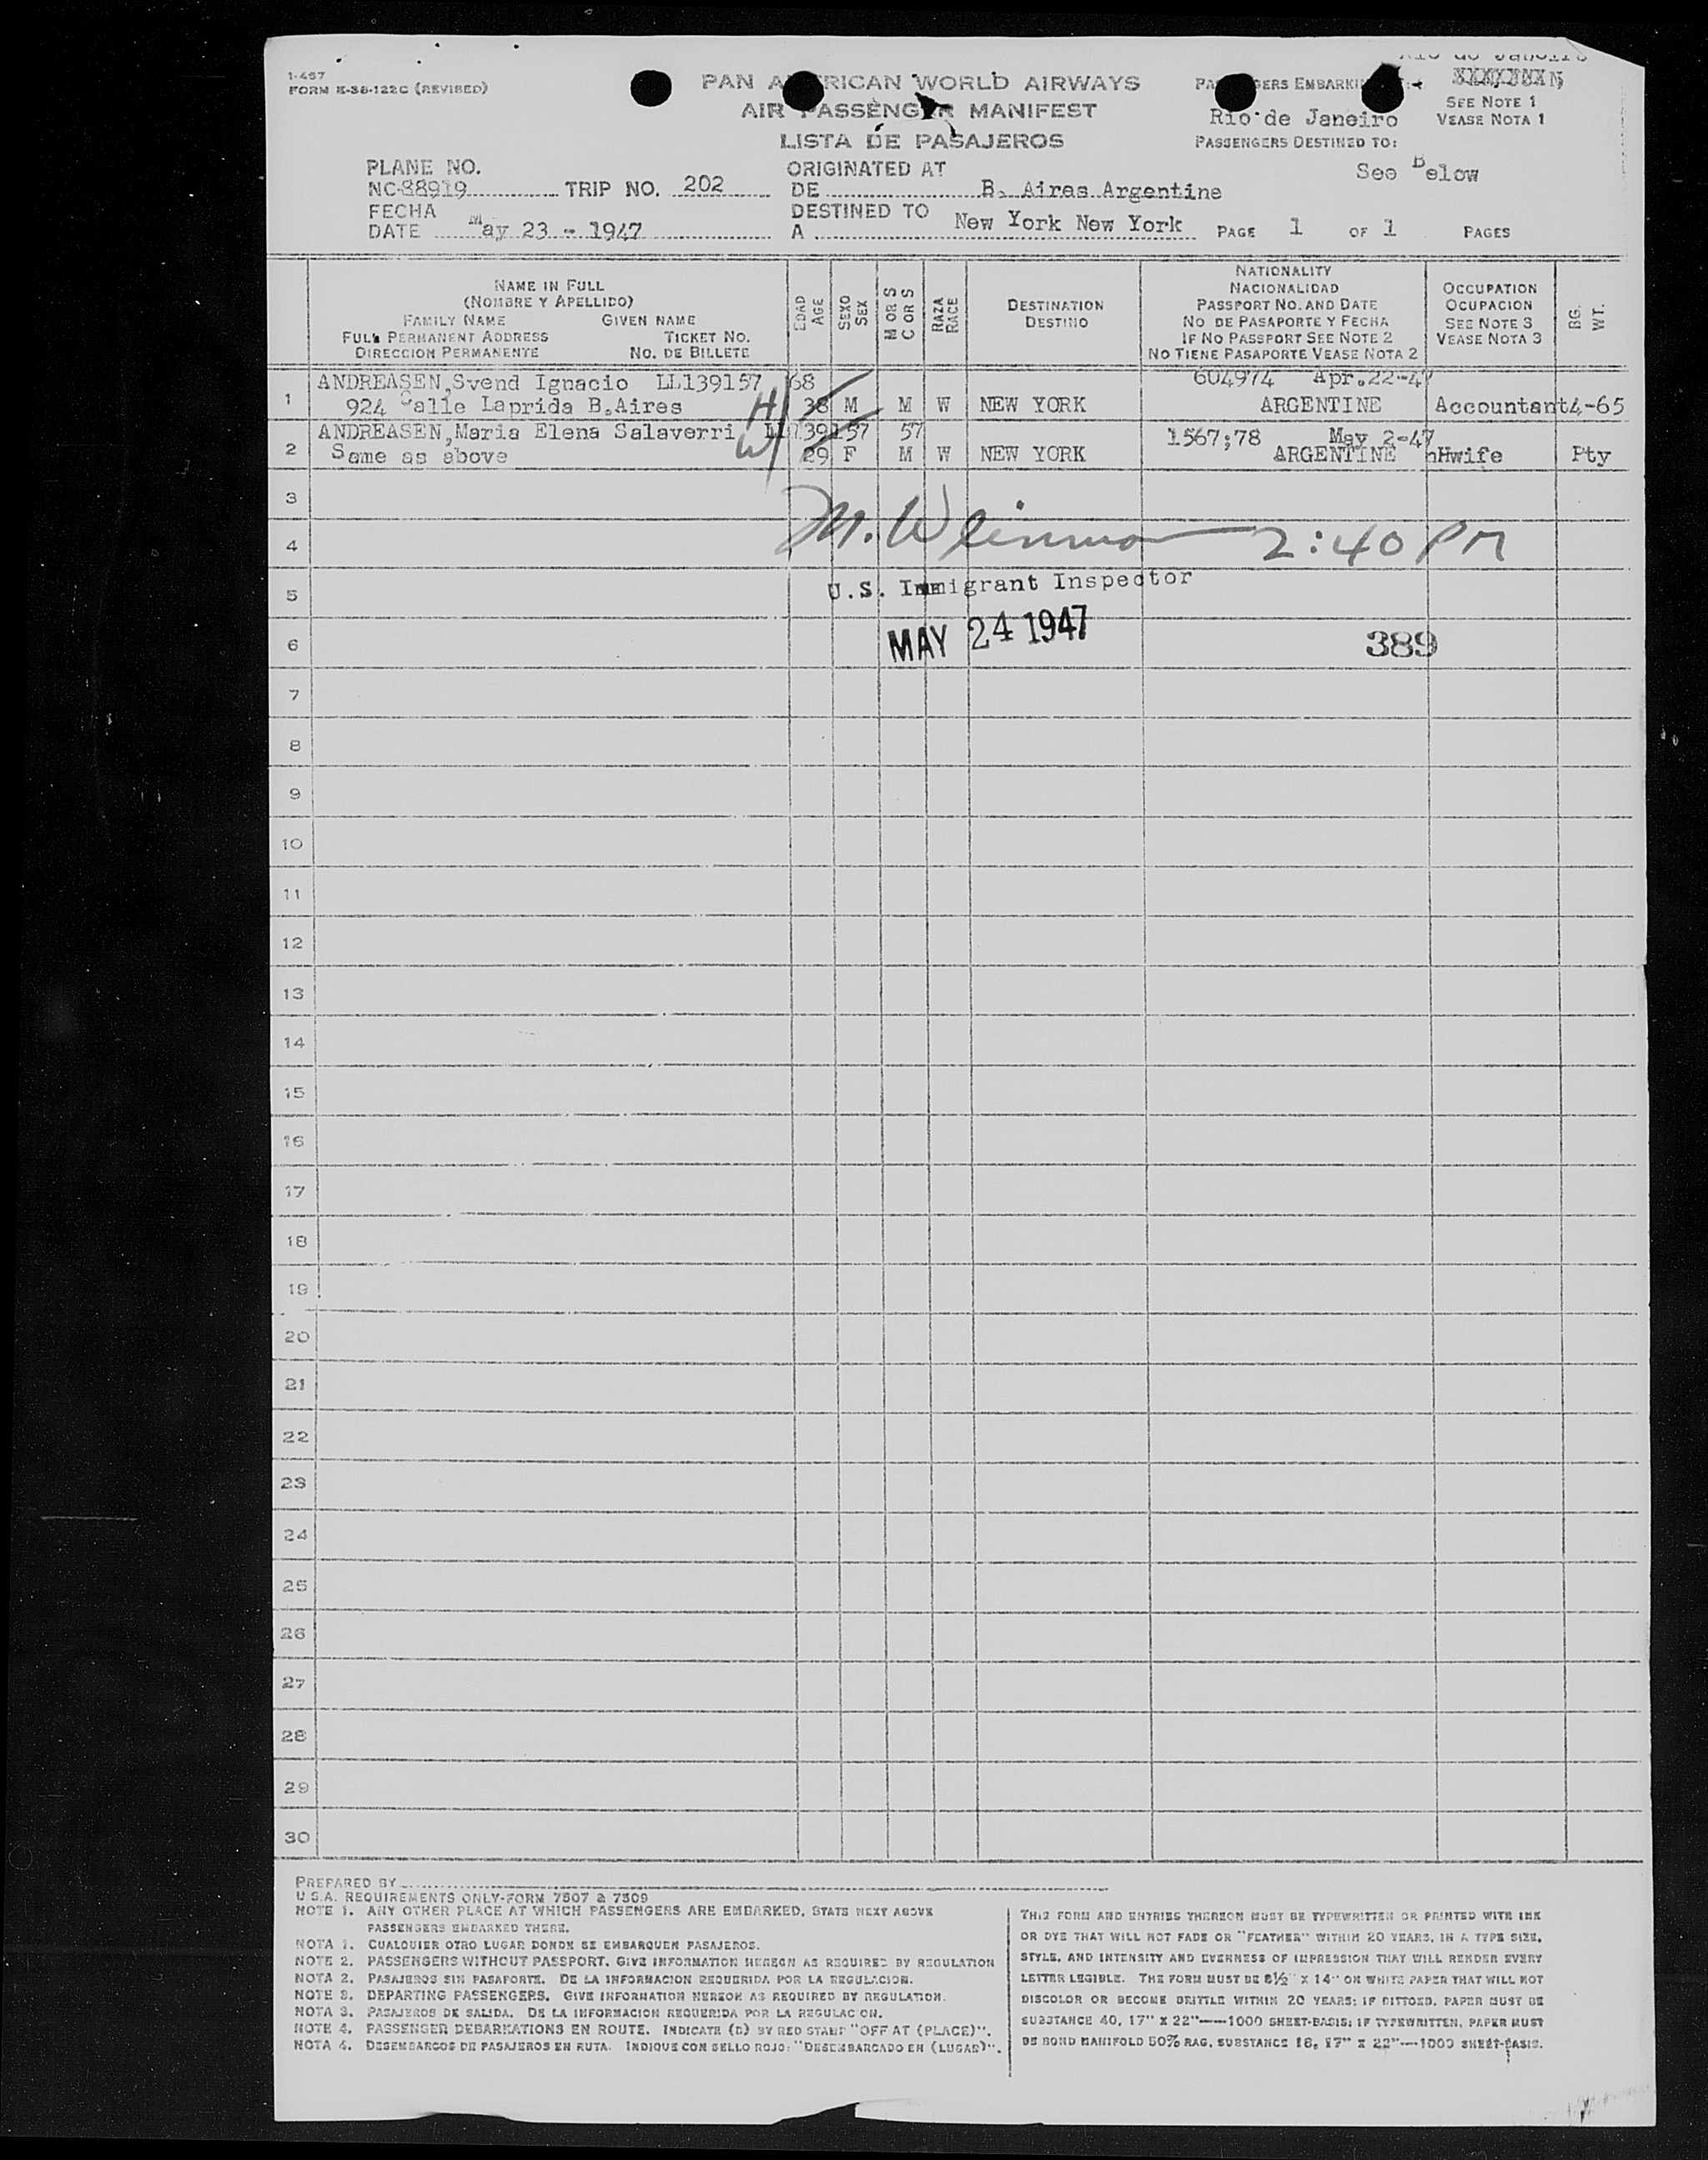 1-467
FORM K-36-122C (REVISED)
PAN AMERICAN WORLD AIRWAYS
AIR PASSENGER MANIFEST
LISTA DE PASAJEROS
Rio de Janeiro
SEE NOTE 1
VEASE NOTA 1
PASSENGERS DESTINED TO:
See Below
PLANE NO.
NC-88919 TRIP NO. 202
FECHA
DATE May 23 - 1947
ORIGINATED AT
DE B. Aires Argentine
DESTINED TO
A New York New York
PAGE 1 OF 1 PAGES
NAME IN FULL
(NOMBRE Y APELLIDO)
FAMILY NAME GIVEN NAME
FULL PERMANENT ADDRESS TICKET NO.
DIRECCION PERMANENTE NO. DE BILLETE
EDAD AGE
SEXO SEX
M OR S
C OR S
RAZA RACE
DESTINATION
DESTINO
NATIONALITY
NACIONALIDAD
PASSPORT NO. AND DATE
NO DE PASAPORTE Y FECHA
IF NO PASSPORT SEE NOTE 2
NO TIENE PASAPORTE VEASE NOTA 2
OCCUPATION
OCUPACION
SEE NOTE 3
VEASE NOTA 3
BG. WT.
1 ANDREASEN,Svend Ignacio LL139157 68 604974 Apr.22-47
924 Calle Laprida B.Aires H 38 M M W NEW YORK ARGENTINE Accountant4-65
2 ANDREASEN,Maria Elena Salaverri LL139157 57 1567;78 May 2-47
Same as above W 29 F M W NEW YORK ARGENTINE hHwife Pty
3
4 2:40 PM
5 U.S. Immigrant Inspector
6 MAY 24 1947 389
7
8
9
10
11
12
13
14
15
16
17
18
19
20
21
22
23
24
25
26
27
28
29
30
PREPARED BY
U.S.A. REQUIREMENTS ONLY-FORM 7507 & 7509
NOTE 1. ANY OTHER PLACE AT WHICH PASSENGERS ARE EMBARKED, STATE NEXT ABOVE
PASSENGERS EMBARKED THERE.
NOTA 1. CUALQUIER OTRO LUGAR DONDE SE EMBARQUEN PASAJEROS.
NOTE 2. PASSENGERS WITHOUT PASSPORT. GIVE INFORMATION HEREON AS REQUIRED BY REGULATION
NOTA 2. PASAJEROS SIN PASAPORTE. DE LA INFORMACION REQUERIDA POR LA REGULACION.
NOTE 3. DEPARTING PASSENGERS. GIVE INFORMATION HEREON AS REQUIRED BY REGULATION.
NOTA 3. PASAJEROS DE SALIDA. DE LA INFORMACION REQUERIDA POR LA REGULACION.
NOTE 4. PASSENGER DEBARKATIONS EN ROUTE. INDICATE (D) BY RED STAMP "OFF AT (PLACE)".
NOTA 4. DESEMBARCOS DE PASAJEROS EN RUTA. INDIQUE CON SELLO ROJO: "DESEMBARCADO EN (LUGAR)".
THIS FORM AND ENTRIES THEREON MUST BE TYPEWRITTEN OR PRINTED WITH INK
OR DYE THAT WILL NOT FADE OR "FEATHER" WITHIN 20 YEARS, IN A TYPE SIZE,
STYLE, AND INTENSITY AND EVENNESS OF IMPRESSION THAT WILL RENDER EVERY
LETTER LEGIBLE. THE FORM MUST BE 8½" X 14" ON WHITE PAPER THAT WILL NOT
DISCOLOR OR BECOME BRITTLE WITHIN 20 YEARS; IF DITTOED, PAPER MUST BE
SUBSTANCE 40, 17" X 22"—1000 SHEET-BASIS; IF TYPEWRITTEN, PAPER MUST
BE BOND MANIFOLD 50% RAG, SUBSTANCE 16, 17" X 22"—1000 SHEET-BASIS.